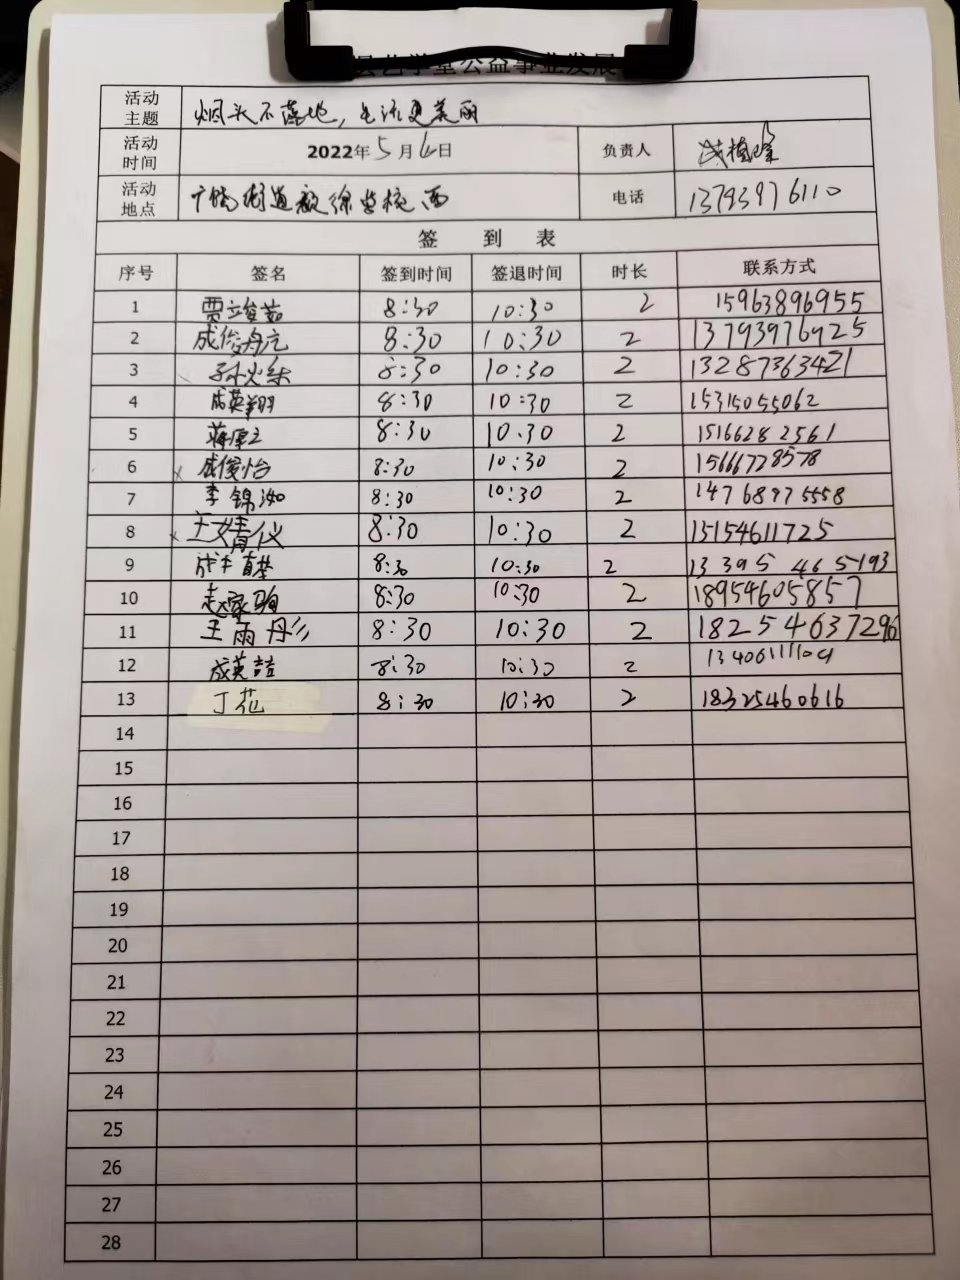 县艺学堂公益事业发展
活动主题 烟头不落地，生活更美丽
活动时间 2022年5月6日 负责人
活动地点 街道 西 电话 13793976110
签 到 表
序号 签名 签到时间 签退时间 时长 联系方式
1 8:30 10:30 2 15963896955
2 8:30 10:30 2 13793976925
3 8:30 10:30 2 13287363421
4 成英翔 8:30 10:30 2 15315055062
5 8:30 10.30 2 15166282561
6 成俊怡 8:30 10:30 2 15666728578
7 李锦汝 8:30 10:30 2 14768975558
8 王婧仪 8:30 10:30 2 15154611725
9 8:30 10:30 2 13395465193
10 赵家驹 8:30 10:30 2 18954605857
11 王雨彤 8:30 10:30 2 18254637296
12 成英喆 8:30 10:30 2
13 丁花 8:30 10:30 2 18325460616
14
15
16
17
18
19
20
21
22
23
24
25
26
27
28